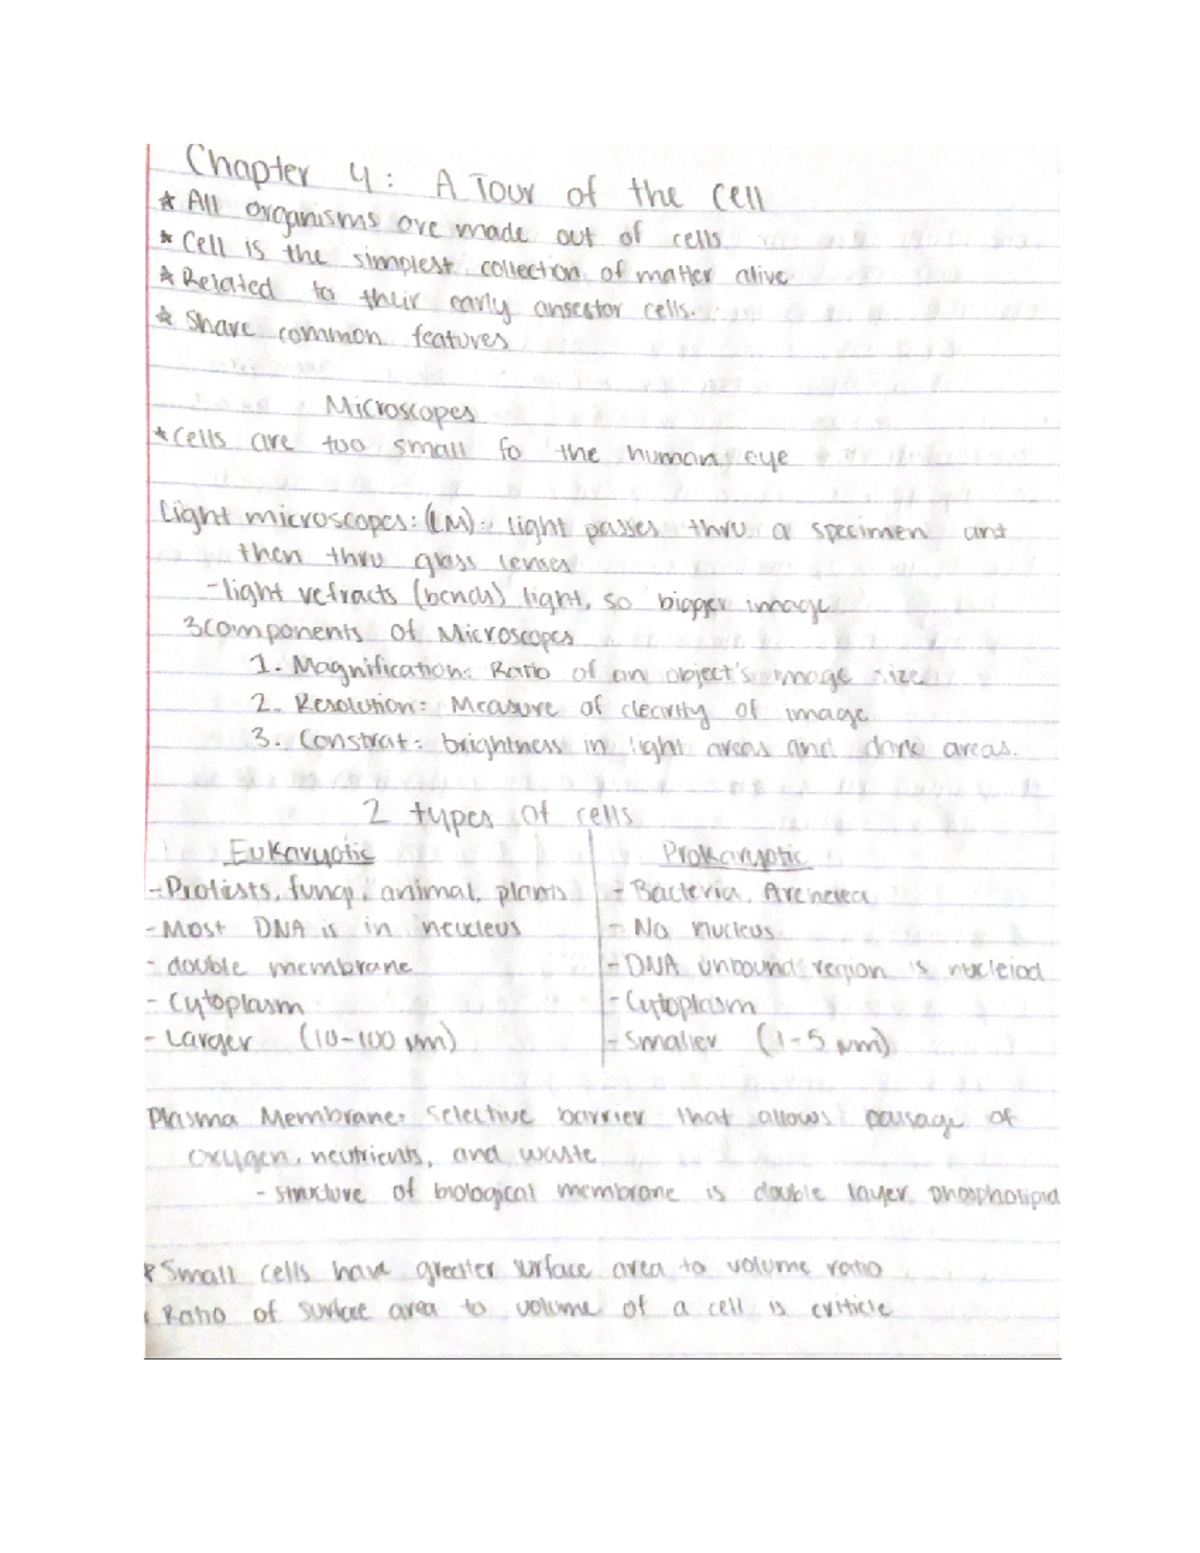 Chapter 4: A Tour of the cell
* All organisms are made out of cells
* Cell is the simplest collection of matter alive
* Related to their early ansestor cells.
* Share common features
Microscopes
* Cells are too small fo the human eye
Light microscopes: (LM): light passes thru a specimen ant
then thru glass lenses
- light refracts (bends) light, so bigger image
3 components of Microscopes
1. Magnification: Ratio of an object's image size
2. Resolution: Measure of clearity of image
3. Constrat: brightness in light areas and dark areas.
2 types of cells
Eukaryotic Prokaryotic
- Protists, fungi, animal, plants - Bacteria, Archeaea
- Most DNA is in neucleus - No nucleus
- double membrane - DNA unbound region is nucleiod
- Cytoplasm - Cytoplasm
- Larger (10-100 μm) - Smaller (1-5 μm)
Plasma Membrane: Selective barrier that allows passage of
oxygen, neutrients, and waste
- structure of biological membrane is double layer phospholipid
* Small cells have greater surface area to volume ratio
* Ratio of surface area to volume of a cell is criticle